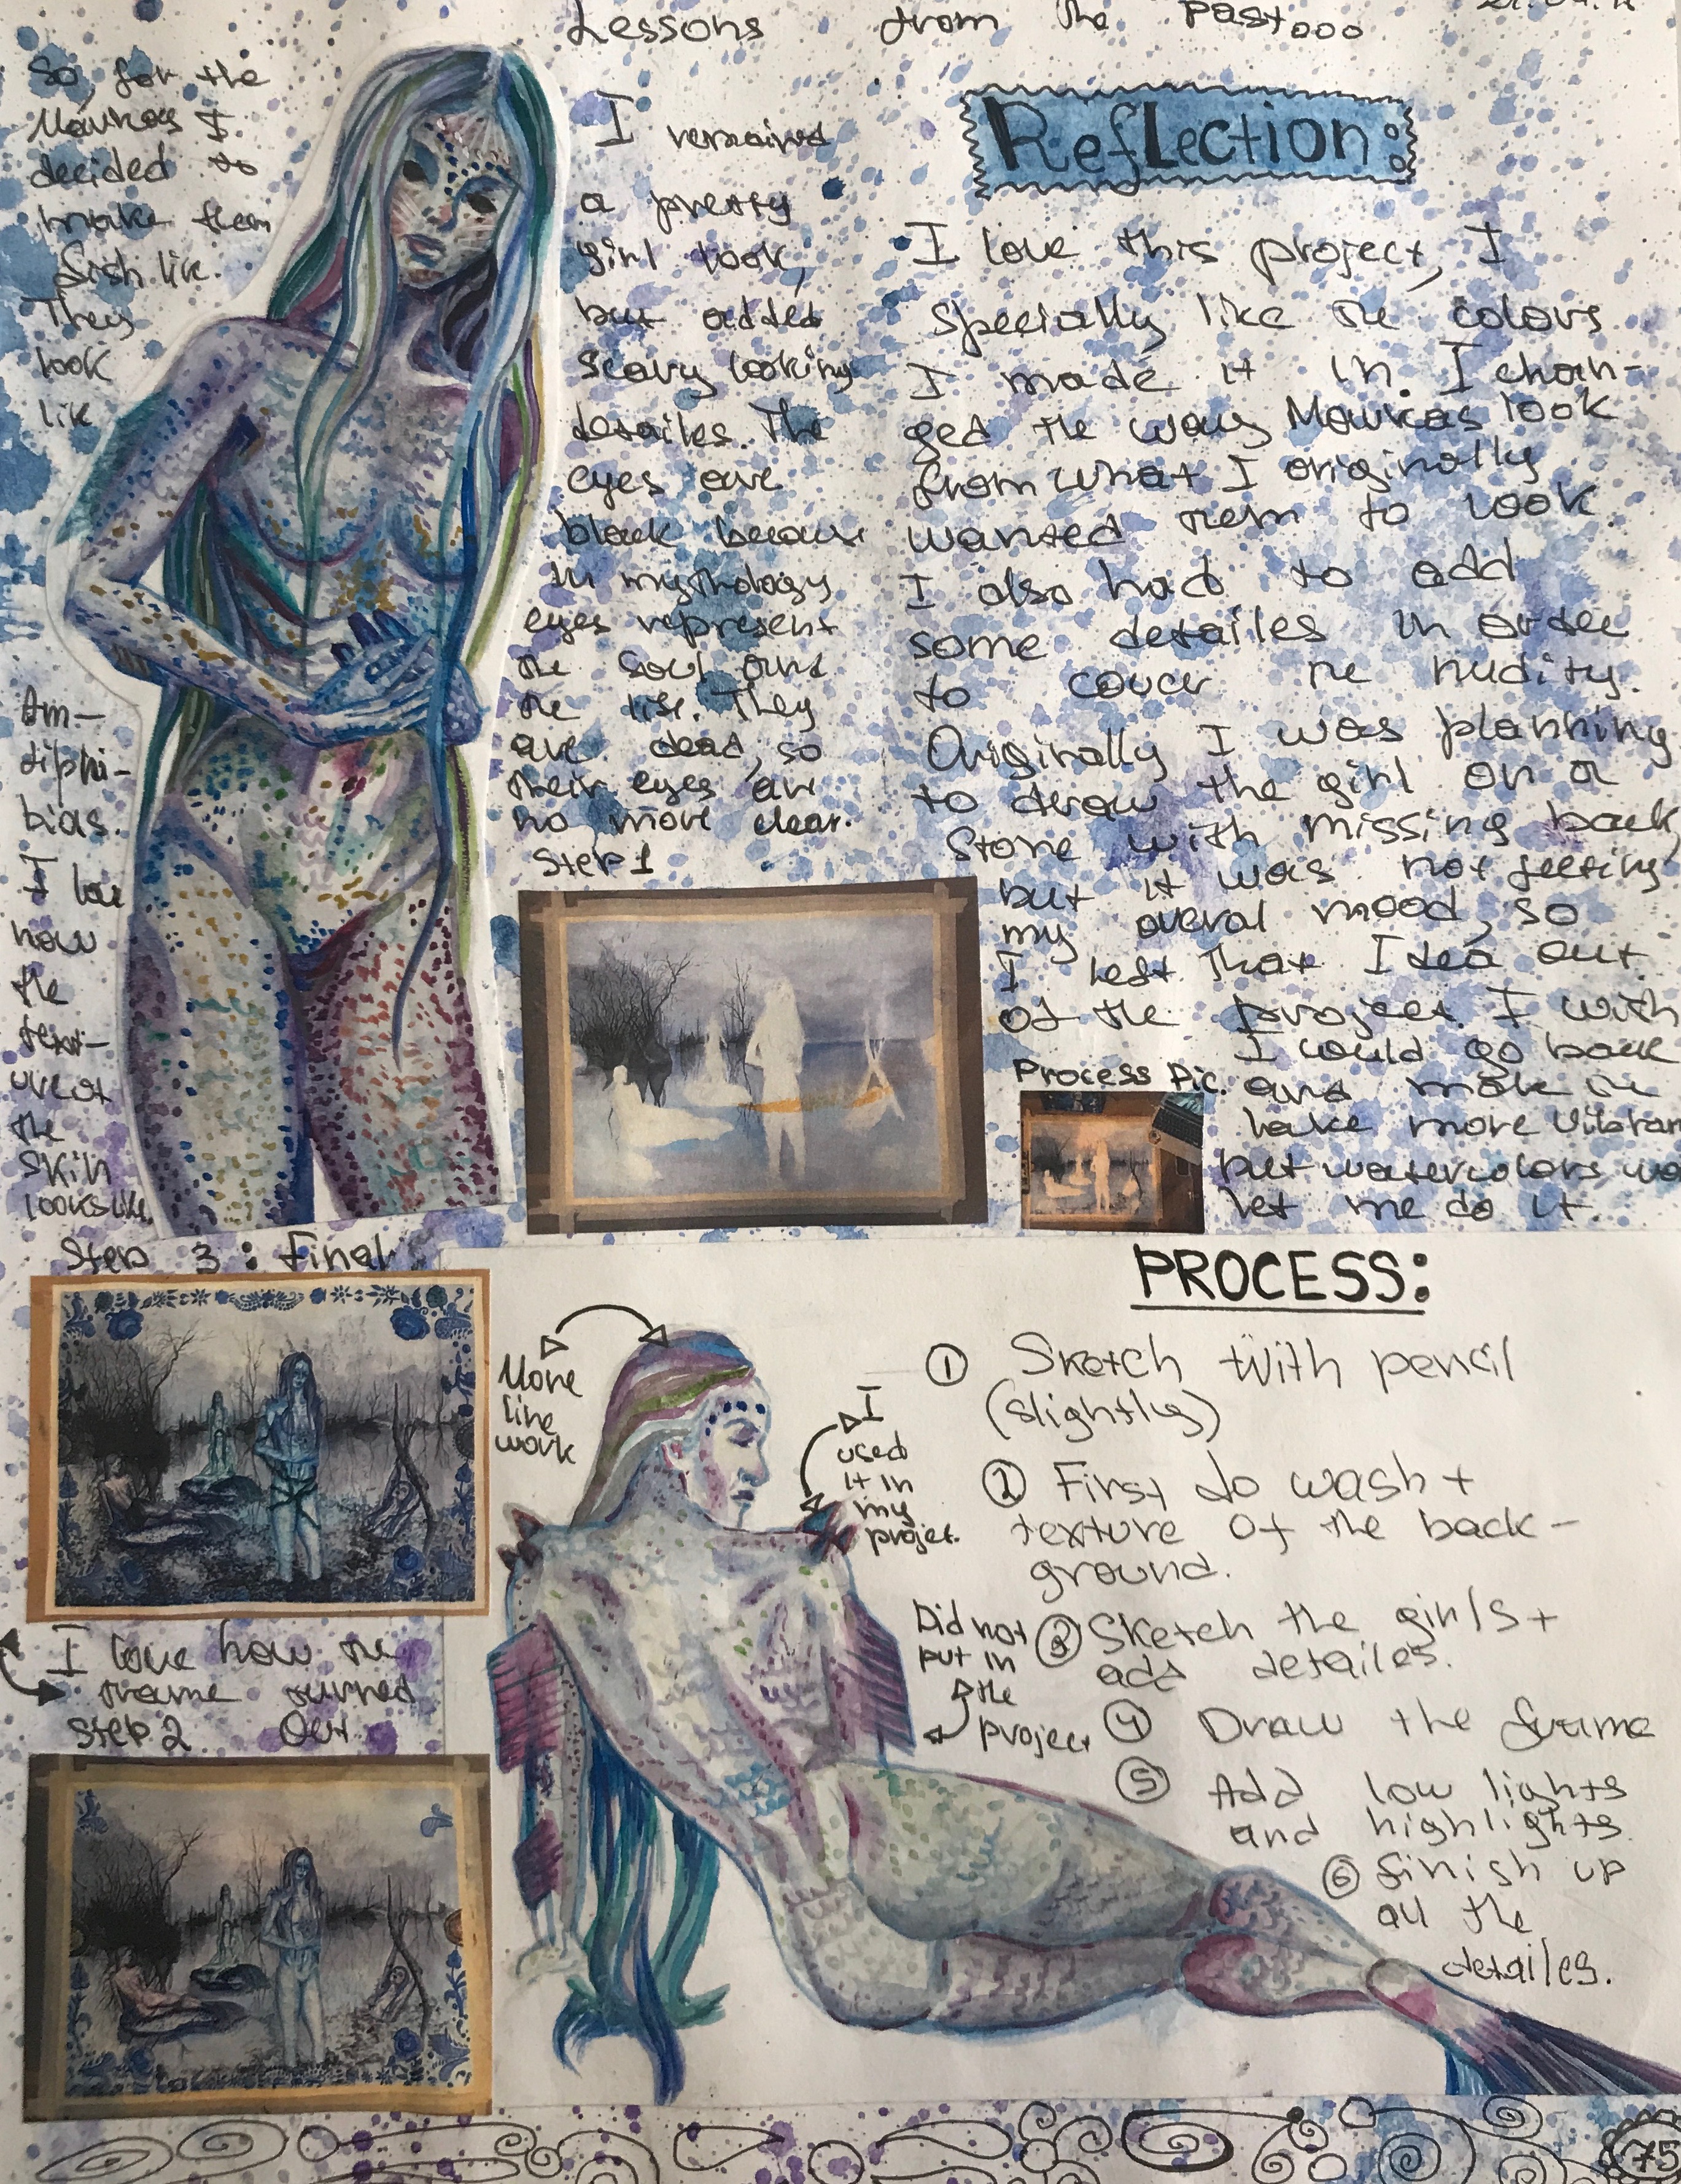 Lessons from the Past...
So, for the
Mawkas I
decided to
make them
fish like.
They
look
like
Am-
diphi-
bias.
I love
how
the
text-
ure of
the
skin
looks like.
I remained
a pretty
girl look,
but added
scary looking
detailes. The
eyes are
black because
in mythology
eyes represent
the soul and
the life. They
are dead, so
their eyes are
no more clear.
Step 1
Reflection:
I love this project, I
specially like the colors
I made it in. I chan-
ged the way Mawkas look
from what I originally
wanted them to look
I also had to add
some detailes in order
to cover the nudity.
Originally I was planning
to draw the girl on a
stone with missing back,
but it was not feeting
my overal mood, so
I left that Idea out
of the project. I wish
I could go back
and make the
lake more vibran
but watercolors wo
let me do it.
Process Pic.
Step 3: Final
I love how the
frame turned
out.
Step 2
PROCESS:
① Sketch with pencil
(slightly)
② First do wash +
texture of the back-
ground.
③ Sketch the girls +
add detailes.
④ Draw the frame
⑤ Add low lights
and highlights
⑥ finish up
all the
detailes.
More
line
work
I
used
it in
my
projet.
Did not
put in
the
project
75